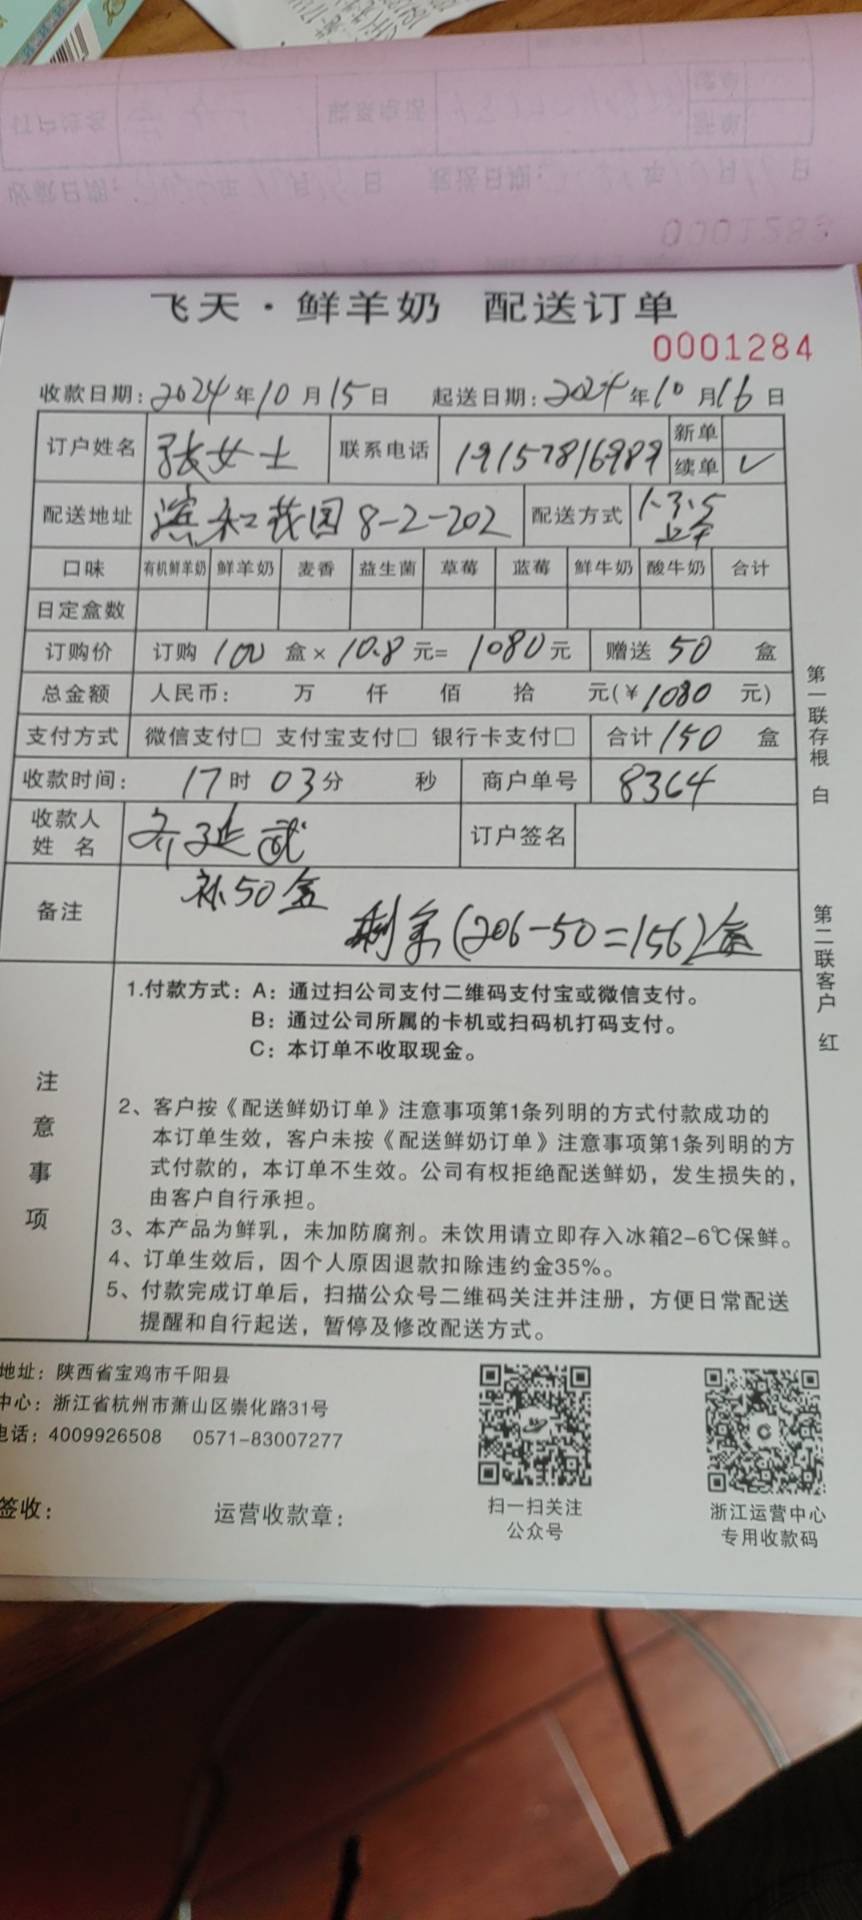 飞天·鲜羊奶 配送订单
0001284
收款日期：2024年10月15日 起送日期：2024年10月16日
订户姓名 张女士 联系电话 19157816989 新单
续单 ✓
配送地址 滨和花园8-2-202 配送方式 1.3.5
口味 有机鲜羊奶 鲜羊奶 麦香 益生菌 草莓 蓝莓 鲜牛奶 酸牛奶 合计
日定盒数
订购价 订购100盒×10.8元=1080元 赠送50盒
总金额 人民币： 万 仟 佰 拾 元(¥1080元)
支付方式 微信支付□ 支付宝支付□ 银行卡支付□ 合计150盒
收款时间： 17时03分 秒 商户单号 8364
收款人
姓 名 齐延武 订户签名
备注 补50盒
剩余(206-50=156)盒
注意事项
1.付款方式：A：通过扫公司支付二维码支付宝或微信支付。
B：通过公司所属的卡机或扫码机打码支付。
C：本订单不收取现金。
2、客户按《配送鲜奶订单》注意事项第1条列明的方式付款成功的
本订单生效，客户未按《配送鲜奶订单》注意事项第1条列明的方
式付款的，本订单不生效。公司有权拒绝配送鲜奶，发生损失的，
由客户自行承担。
3、本产品为鲜乳，未加防腐剂。未饮用请立即存入冰箱2-6℃保鲜。
4、订单生效后，因个人原因退款扣除违约金35%。
5、付款完成订单后，扫描公众号二维码关注并注册，方便日常配送
提醒和自行起送，暂停及修改配送方式。
第一联存根 白
第二联客户 红
地址：陕西省宝鸡市千阳县
中心：浙江省杭州市萧山区崇化路31号
电话：4009926508 0571-83007277
签收： 运营收款章：
扫一扫关注
公众号
浙江运营中心
专用收款码